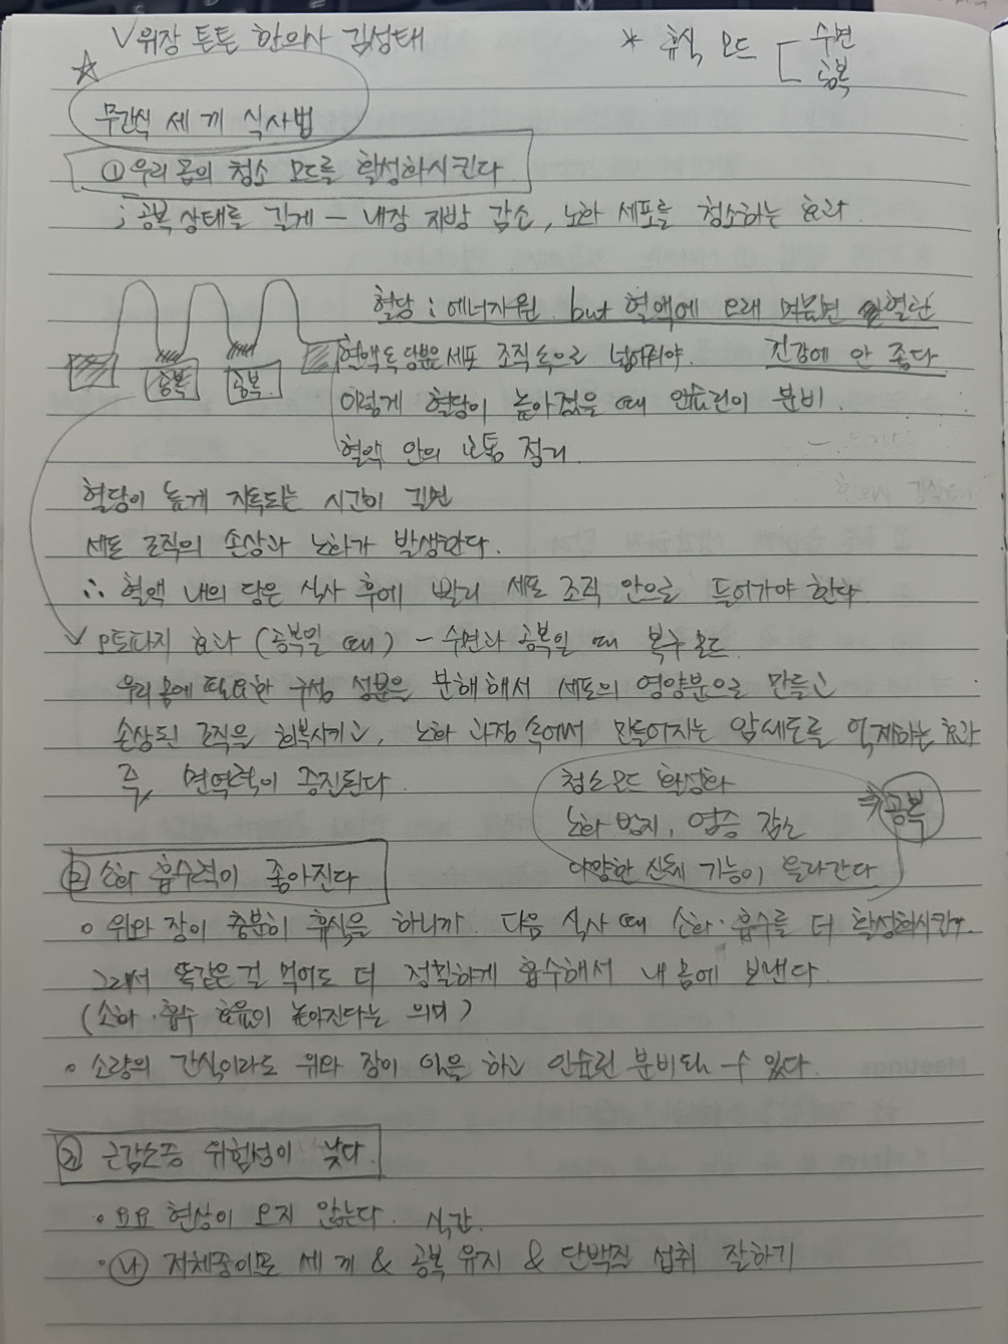 V 위장 튼튼 한의사 김성태
* 휴식 모드 [ 수면
공복
☆
무간식 세 끼 식사법
① 우리 몸의 청소 모드를 활성화시킨다.
; 공복 상태를 길게 - 내장 지방 감소, 노화 세포를 청소하는 효과.
혈당 : 에너지원. but 혈액에 오래 머물면 혈관
혈액 속 당분은 세포 조직 속으로 넘어와야. 건강에 안 좋다
공복 공복
이렇게 혈당이 높아졌을 때 인슐린이 분비.
혈액 안의 교통 정리.
혈당이 높게 지속되는 시간이 길면
세포 조직의 손상과 노화가 발생한다.
∴ 혈액 내의 당은 식사 후에 빨리 세포 조직 안으로 들어가야 한다.
오토파지 효과 (공복일 때) - 수면과 공복일 때 복구 모드.
우리 몸에 필요한 구성 성분을 분해해서 세포의 영양분으로 만들고
손상된 조직을 회복시키고, 노화 과정 속에서 만들어지는 암세포를 억제하는 효과
즉, 면역력이 증진된다.
청소모드 활성화
노화 방지, 염증 감소
⇒ 공복
다양한 신체 기능이 올라간다
② 소화 흡수력이 좋아진다.
∘ 위와 장이 충분히 휴식을 하니까. 다음 식사 때 소화·흡수를 더 활성화시킨다.
그래서 똑같은 걸 먹어도 더 정확하게 흡수해서 내 몸에 보낸다.
(소화·흡수 효율이 높아진다는 의미)
∘ 소량의 간식이라도 위와 장이 일을 하고 인슐린 분비될 수 있다.
③ 근감소증 위험성이 낮다.
∘ 요요 현상이 오지 않는다.
· 나 저체중이므로 세 끼 & 공복 유지 & 단백질 섭취 잘하기